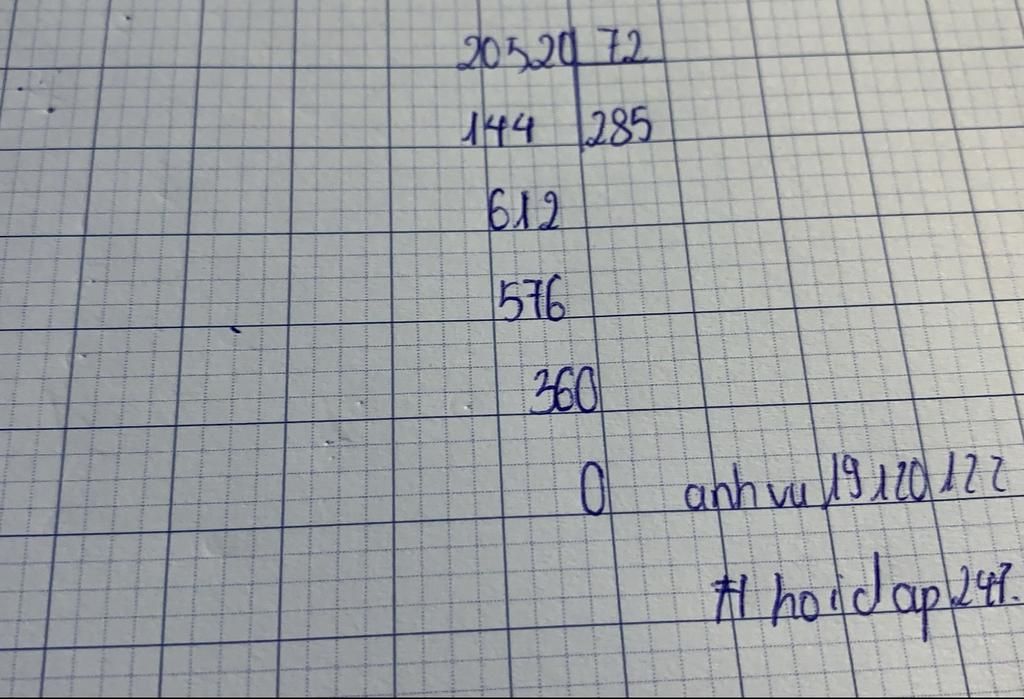 20520 72
144 285
612
576
360
0 anhvu19120122
#hoidap247.